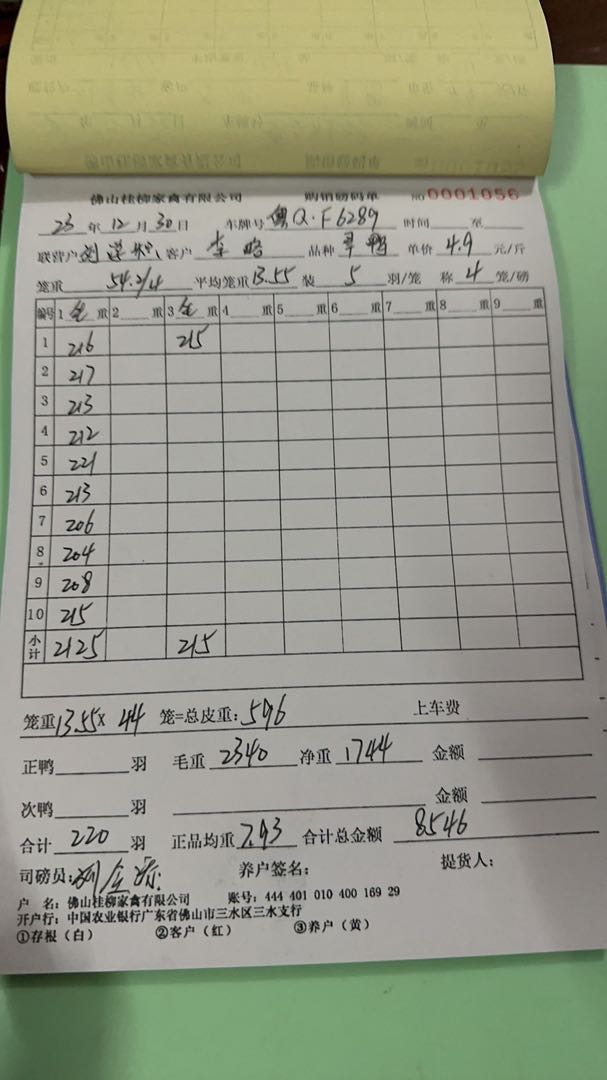 佛山桂柳家禽有限公司 购销磅码单 No 0001056
23 年 12 月 30 日 车牌号 粤Q·F6289 时间 至
联营户 刘 客户 李 品种 鸭 单价 4.9 元/斤
笼重 54.2/4 平均笼重 13.55 装 5 羽/笼 称 4 笼/磅
编号 1 毛 重 2 重 3 毛 重 4 重 5 重 6 重 7 重 8 重 9 重
1 216 215
2 217
3 213
4 212
5 221
6 213
7 206
8 204
9 208
10 215
小计 2125 215
笼重 13.55× 44 笼=总皮重: 596 上车费
正鸭 羽 毛重 2340 净重 1744 金额
次鸭 羽 金额
合计 220 羽 正品均重 7.93 合计总金额 8546
司磅员: 刘 养户签名: 提货人:
户 名: 佛山桂柳家禽有限公司 账号: 444 401 010 400 169 29
开户行: 中国农业银行广东省佛山市三水区三水支行
①存根（白） ②客户（红） ③养户（黄）